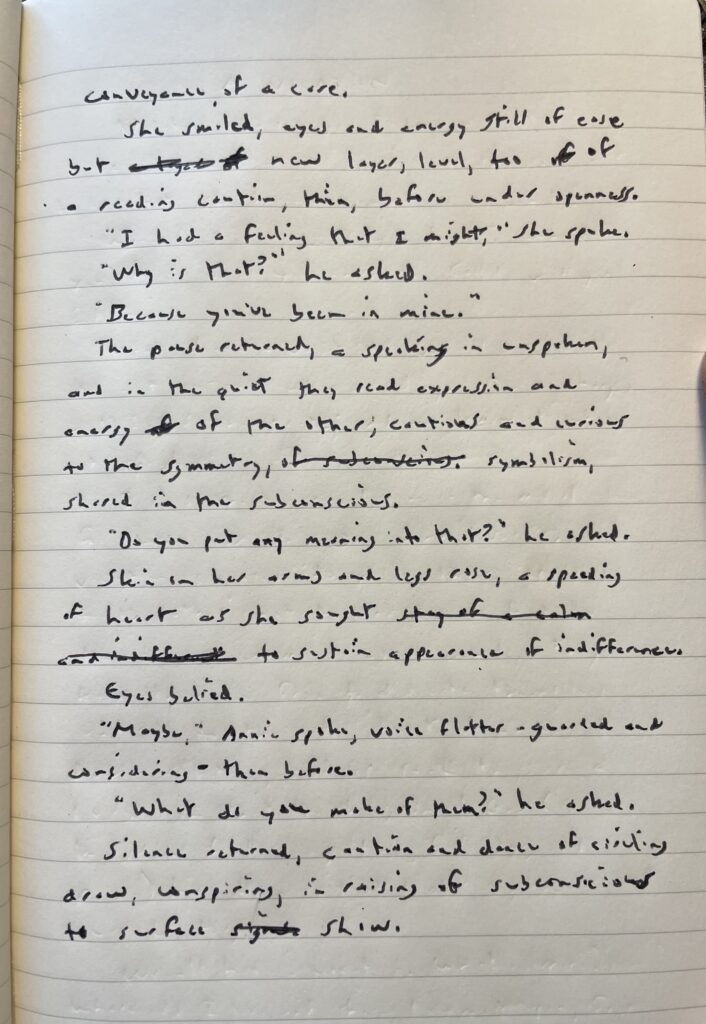 conveyance, of a core.
She smiled, eyes and energy still of ease
but new layer, level, too of
a reading caution, then, before under openness.
"I had a feeling that I might," she spoke.
"Why is that?" he asked.
"Because you've been in mine."
The pause returned, a speaking in unspoken,
and in the quiet they read expression and
energy of the other, cautious and curious
to the symmetry, of subconscious. symbolism,
shared in the subconscious.
"Do you put any meaning into that?" he asked.
Skin on her arms and legs rose, a speeding
of heart as she sought stay of a calm
and indifferent to sustain appearance of indifference.
Eyes belied.
"Maybe," Annie spoke, voice flatter - guarded and
considering - than before.
"What do you make of them?" he asked.
Silence returned, caution and dance of circling
draw, conspiring, in raising of subconscious
to surface show.